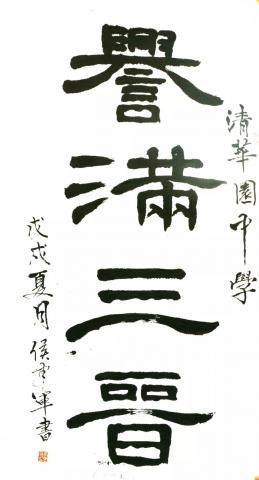 清華園中學
譽滿三晉
戊戌夏月侯雲軍書